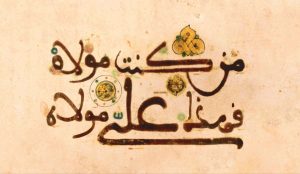 من كنت مولاه
فهذا علىّ مولاه